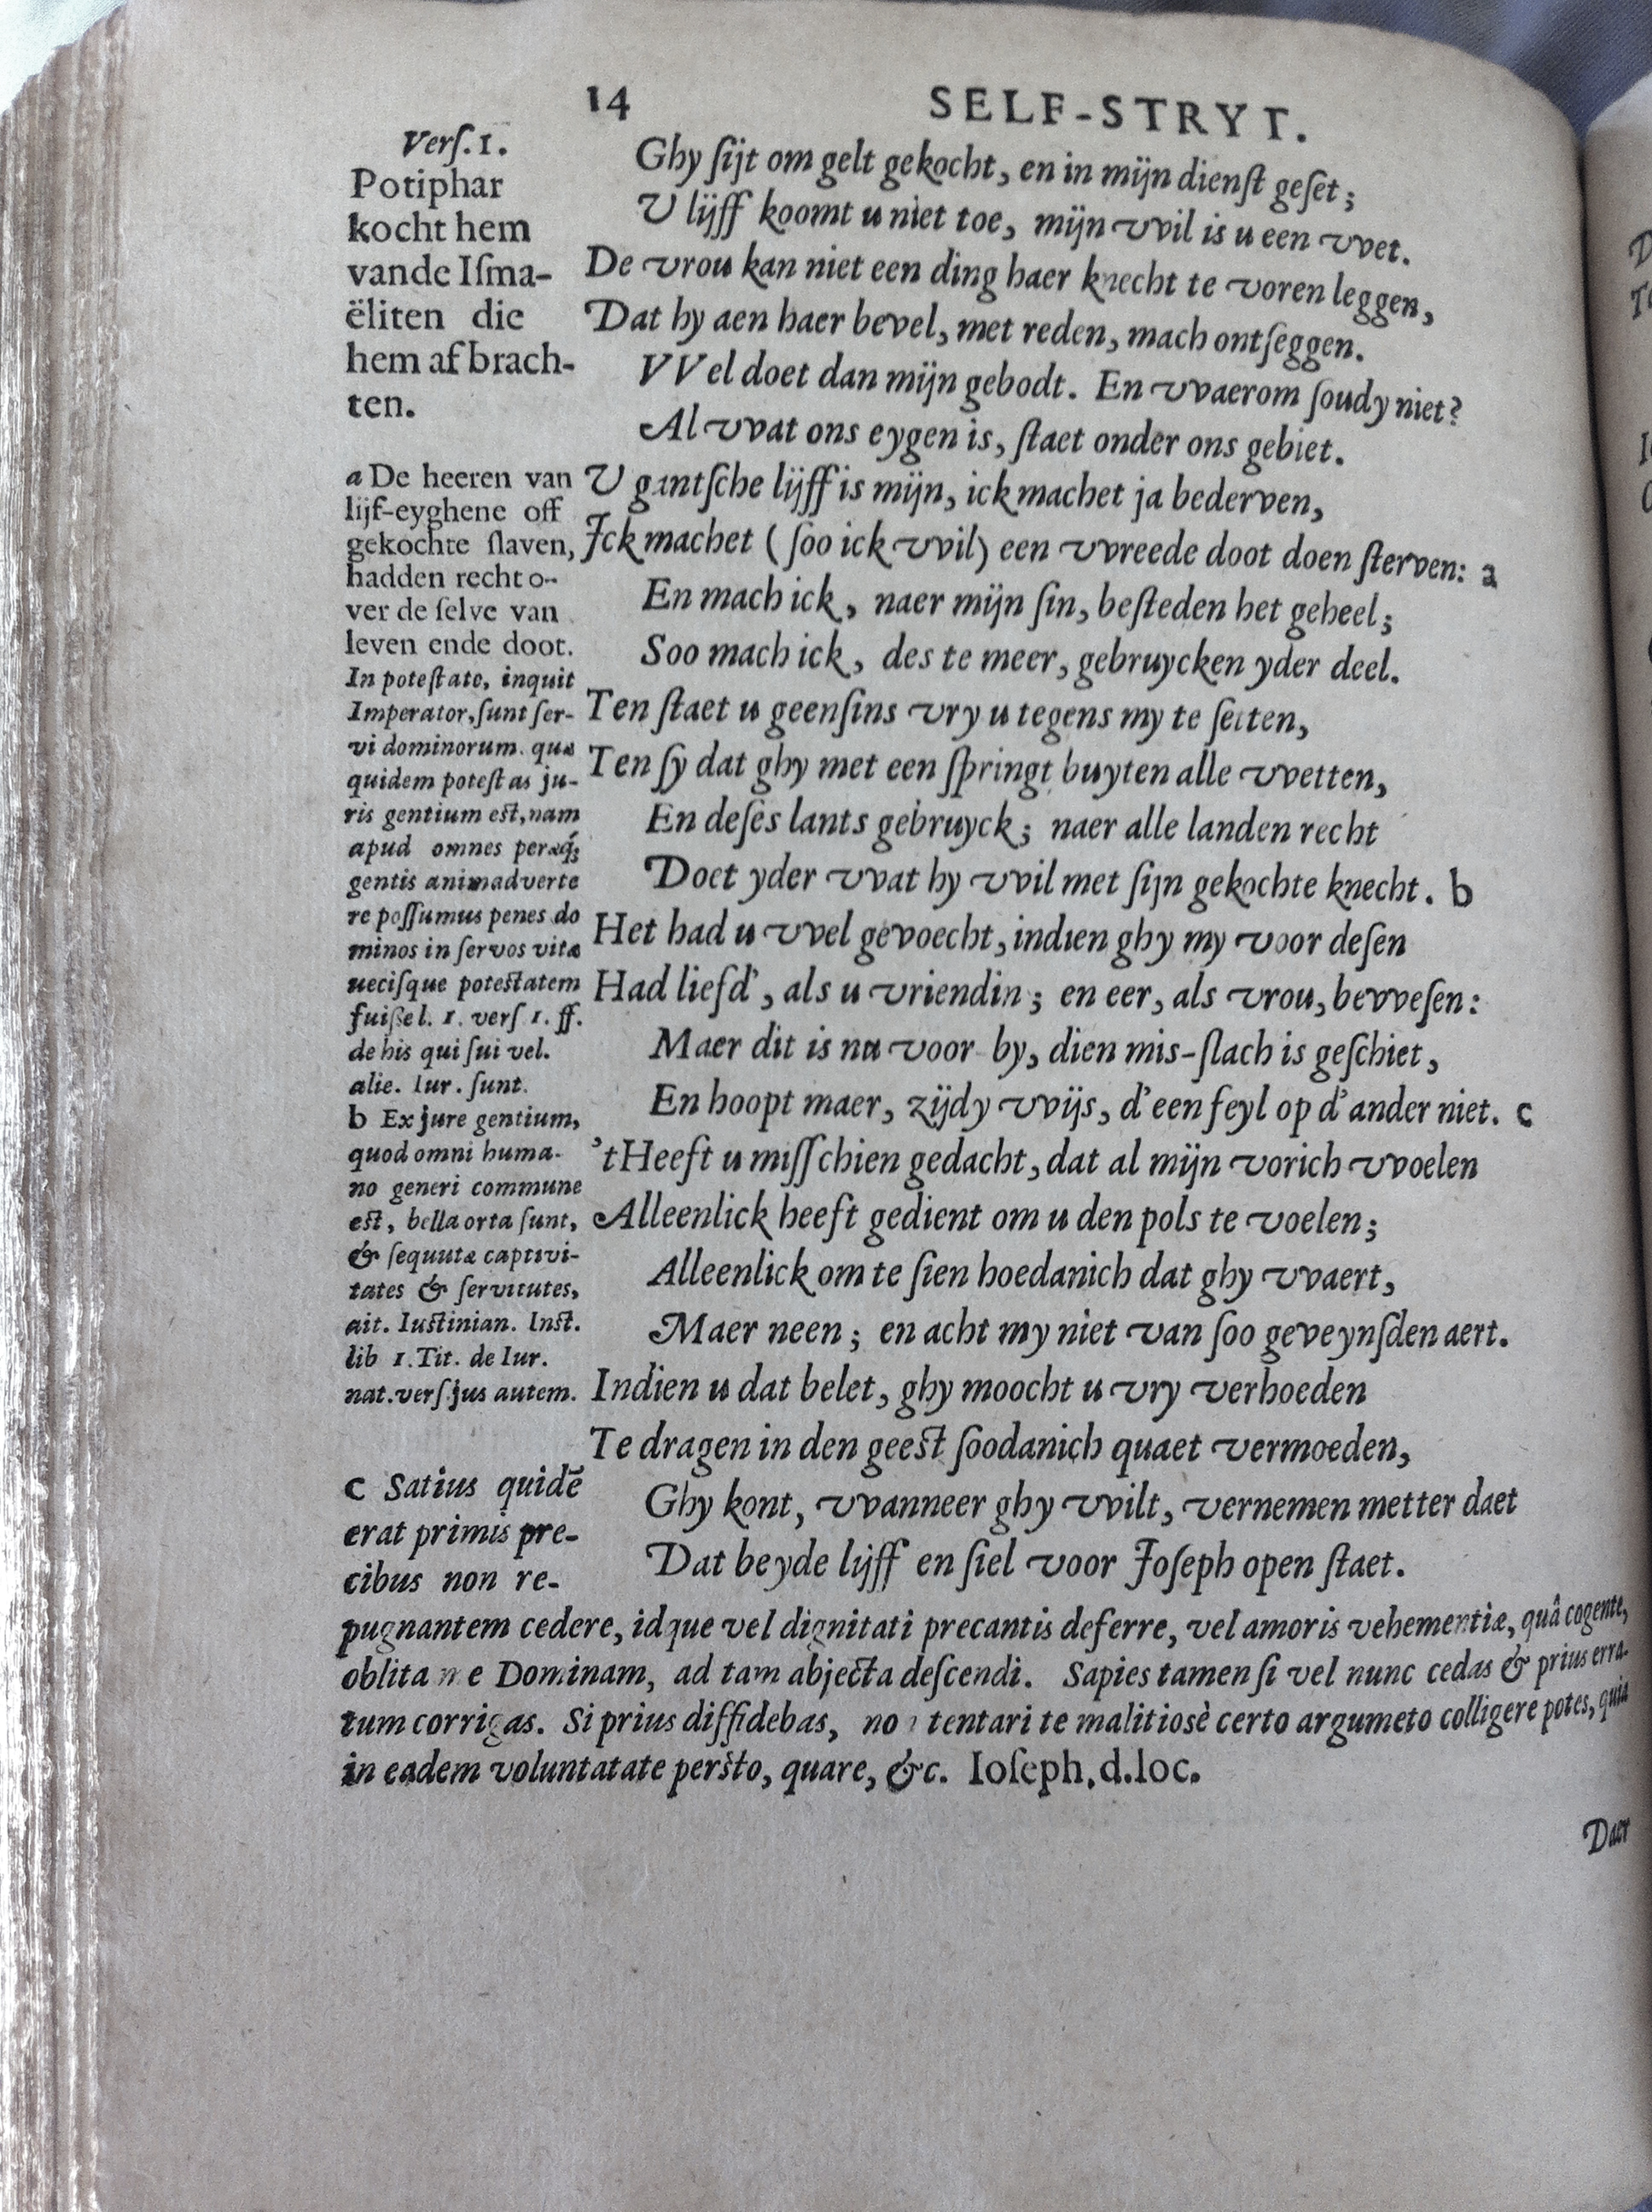 14 SELF-STRYT.
Verſ. 1.
Potiphar
kocht hem
vande Iſma-
ëliten die
hem af brach-
ten.
a De heeren van
lijf-eyghene off
gekochte ſlaven,
hadden recht o-
ver de ſelve van
leven ende doot.
In poteſtate, inquit
Imperator, ſunt ſer-
vi dominorum. quæ
quidem poteſtas ju-
ris gentium eſt, nam
apud omnes peræq́;
gentis animadverte
re poſſumus penes do
minos in ſervos vitæ
neciſque poteſtatem
fuiſſe l. 1. verſ 1. ff.
de his qui ſui vel.
alie. Iur. ſunt.
b Ex jure gentium,
quod omni huma-
no generi commune
eſt, bella orta ſunt,
& ſequutæ captivi-
tates & ſervitutes,
ait. Iuſtinian. Inſt.
lib 1. Tit. de Iur.
nat. verſ. jus autem.
Ghy ſijt om gelt gekocht, en in mijn dienſt geſet;
U lijff koomt u niet toe, mijn vvil is u een vvet.
De vrou kan niet een ding haer knecht te voren leggen,
Dat hy aen haer bevel, met reden, mach ontſeggen.
VVel doet dan mijn gebodt. En vvaerom ſoudy niet?
Al vvat ons eygen is, ſtaet onder ons gebiet.
U gantſche lijff is mijn, ick machet ja bederven,
Ick machet (ſoo ick vvil) een vvreede doot doen ſterven: a
En mach ick, naer mijn ſin, beſteden het geheel;
Soo mach ick, des te meer, gebruycken yder deel.
Ten ſtaet u geenſins vry u tegens my te ſetten,
Ten ſy dat ghy met een ſpringt buyten alle vvetten,
En deſes lants gebruyck; naer alle landen recht
Doet yder vvat hy vvil met ſijn gekochte knecht. b
Het had u vvel gevoecht, indien ghy my voor deſen
Had liefd', als u vriendin; en eer, als vrou, bevveſen:
Maer dit is nu voor by, dien mis-ſlach is geſchiet,
En hoopt maer, zijdy vvijs, d'een feyl op d'ander niet. c
't Heeft u miſſchien gedacht, dat al mijn vorich vvoelen
Alleenlick heeft gedient om u den pols te voelen;
Alleenlick om te ſien hoedanich dat ghy vvaert,
Maer neen; en acht my niet van ſoo geveynſden aert.
Indien u dat belet, ghy moocht u vry verhoeden
Te dragen in den geeſt ſoodanich quaet vermoeden,
Ghy kont, vvanneer ghy vvilt, vernemen metter daet
Dat beyde lijff en ſiel voor Joſeph open ſtaet.
c Satius quidē
erat primis pre-
cibus non re-
pugnantem cedere, idque vel dignitati precantis deferre, vel amoris vehementiæ, quâ cogente,
oblita m e Dominam, ad tam abjecta deſcendi. Sapies tamen ſi vel nunc cedas & prius erra-
tum corrigas. Si prius diffidebas, no tentari te malitiosè certo argumeto colligere potes, quia
in eadem voluntatate perſto, quare, &c. Ioſeph. d. loc.
Daer